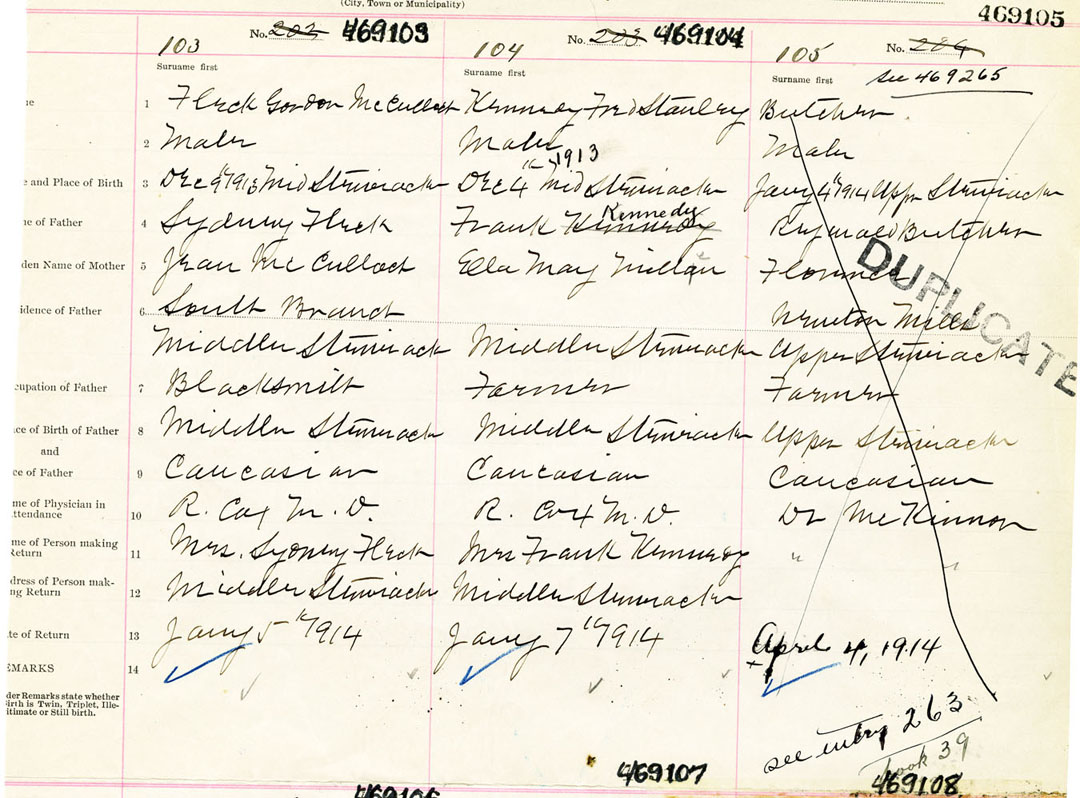 (City, Town or Municipality)
469105
103 No. 202 469103
104 No. 203 469104
105 No. 204
Surname first
Surname first
Surname first see 469265
me 1 Fleck Gordon McCulloch Kennedy Fred Stanley Butcher
2 Male Male Male
e and Place of Birth 3 Dec 9th 1913 Mid Stewiacke Dec 4th 1913 Mid Stewiacke Jany 4th 1914 Upper Stewiacke
ne of Father 4 Sydney Fleck Frank Kennedy Kennedy Reginald Butcher
den Name of Mother 5 Jean McCulloch Ella May Florence
idence of Father 6 South Branch Newton Mills
Middle Stewiacke Middle Stewiacke Upper Stewiacke
cupation of Father 7 Blacksmith Farmer Farmer
ce of Birth of Father 8 Middle Stewiacke Middle Stewiacke Upper Stewiacke
and
ce of Father 9 Caucasian Caucasian Caucasian
me of Physician in
ttendance 10 R. Cox M.D. R. Cox M.D. Dr McKinnon
me of Person making
Return 11 Mrs. Sydney Fleck Mrs Frank Kennedy " "
dress of Person mak-
ng Return 12 Middle Stewiacke Middle Stewiacke
te of Return 13 Jany 5th 1914 Jany 7th 1914 April 4, 1914
EMARKS 14
der Remarks state whether
irth is Twin, Triplet, Ille-
itimate or Still birth.
DUPLICATE
see entry 263
book 39
469106
469107
469108